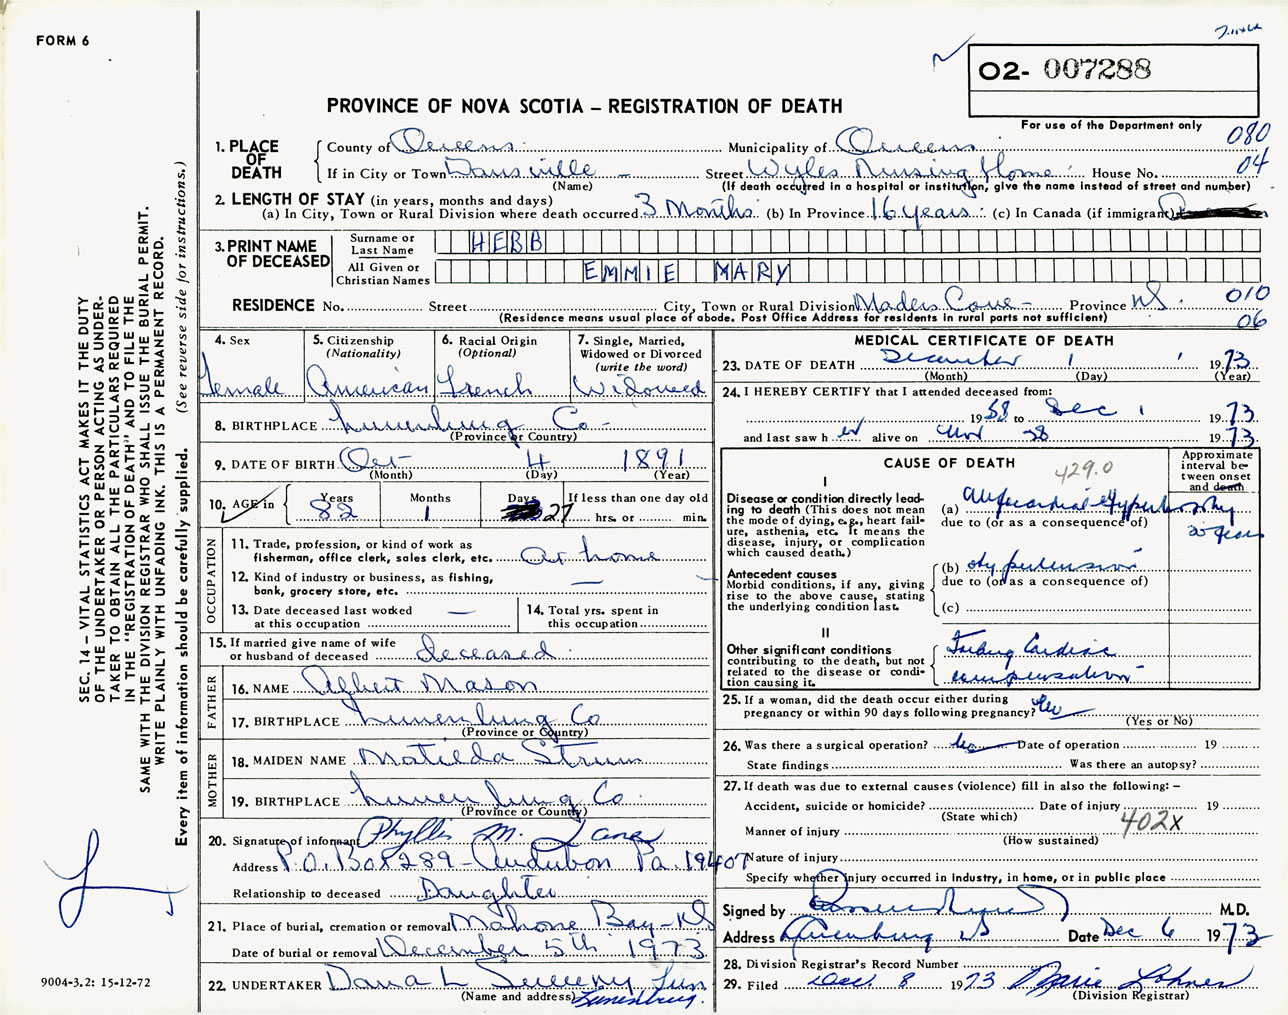 FORM 6
02- 007288
PROVINCE OF NOVA SCOTIA – REGISTRATION OF DEATH
For use of the Department only
080
04
1. PLACE OF DEATH
County of Queens Municipality of Queens
If in City or Town Danesville – Street Wyles Nursing Home House No.
(Name) (If death occurred in a hospital or institution, give the name instead of street and number)
2. LENGTH OF STAY (in years, months and days)
(a) In City, Town or Rural Division where death occurred 3 Months (b) In Province 16 years (c) In Canada (if immigrant)
3. PRINT NAME OF DECEASED
Surname or Last Name HEBB
All Given or Christian Names EMMIE MARY
RESIDENCE No. Street City, Town or Rural Division Maders Cove – Province NS. 010
(Residence means usual place of abode. Post Office Address for residents in rural parts not sufficient) 06
4. Sex
female
5. Citizenship
(Nationality)
American
6. Racial Origin
(Optional)
French
7. Single, Married,
Widowed or Divorced
(write the word)
Widowed
8. BIRTHPLACE Lunenburg Co –
(Province or Country)
9. DATE OF BIRTH Oct 4 1891
(Month) (Day) (Year)
10. AGE in Years Months Days If less than one day old
82 1 27 hrs. or min.
OCCUPATION
11. Trade, profession, or kind of work as
fisherman, office clerk, sales clerk, etc. at home
12. Kind of industry or business, as fishing,
bank, grocery store, etc. —
13. Date deceased last worked
at this occupation —
14. Total yrs. spent in
this occupation
15. If married give name of wife
or husband of deceased deceased
FATHER
16. NAME Albert Mason
17. BIRTHPLACE Lunenburg Co
(Province or Country)
MOTHER
18. MAIDEN NAME Matilda Strum
19. BIRTHPLACE Lunenburg Co
(Province or Country)
20. Signature of informant Phyllis M. Lane
Address P.O. Box 289 – Audubon Pa. 19407
Relationship to deceased Daughter
21. Place of burial, cremation or removal Mahone Bay – NS
Date of burial or removal December 5th 1973
22. UNDERTAKER Dana L Sweeny
(Name and address) Lunenburg.
MEDICAL CERTIFICATE OF DEATH
23. DATE OF DEATH December 1 1973
(Month) (Day) (Year)
24. I HEREBY CERTIFY that I attended deceased from:
1958 to Dec 1 1973
and last saw h er alive on Nov 28 1973
CAUSE OF DEATH 429.0
Approximate
interval be-
tween onset
and death
I
Disease or condition directly lead-
ing to death (This does not mean
the mode of dying, e.g., heart fail-
ure, asthenia, etc. It means the
disease, injury, or complication
which caused death.)
(a) Myocardial Hypertrophy
due to (or as a consequence of)
20 years
Antecedent causes
Morbid conditions, if any, giving
rise to the above cause, stating
the underlying condition last.
(b) Hypertension
due to (or as a consequence of)
(c)
II
Other significant conditions
contributing to the death, but not
related to the disease or condi-
tion causing it.
Failing Cardiac
compensation
25. If a woman, did the death occur either during
pregnancy or within 90 days following pregnancy? No
(Yes or No)
26. Was there a surgical operation? No Date of operation 19
State findings Was there an autopsy?
27. If death was due to external causes (violence) fill in also the following: –
Accident, suicide or homicide? Date of injury 19
(State which)
402x
Manner of injury
(How sustained)
Nature of injury
Specify whether injury occurred in industry, in home, or in public place
Signed by M.D.
Address Lunenburg NS Date Dec 6 1973
28. Division Registrar's Record Number
29. Filed Dec. 8 1973 Marie Lohnes
(Division Registrar)
SEC. 14 – VITAL STATISTICS ACT MAKES IT THE DUTY
OF THE UNDERTAKER OR PERSON ACTING AS UNDER-
TAKER TO OBTAIN ALL THE PARTICULARS REQUIRED
IN THE "REGISTRATION OF DEATH" AND TO FILE THE
SAME WITH THE DIVISION REGISTRAR WHO SHALL ISSUE THE BURIAL PERMIT.
WRITE PLAINLY WITH UNFADING INK. THIS IS A PERMANENT RECORD.
Every item of information should be carefully supplied. (See reverse side for instructions.)
9004-3.2: 15-12-72